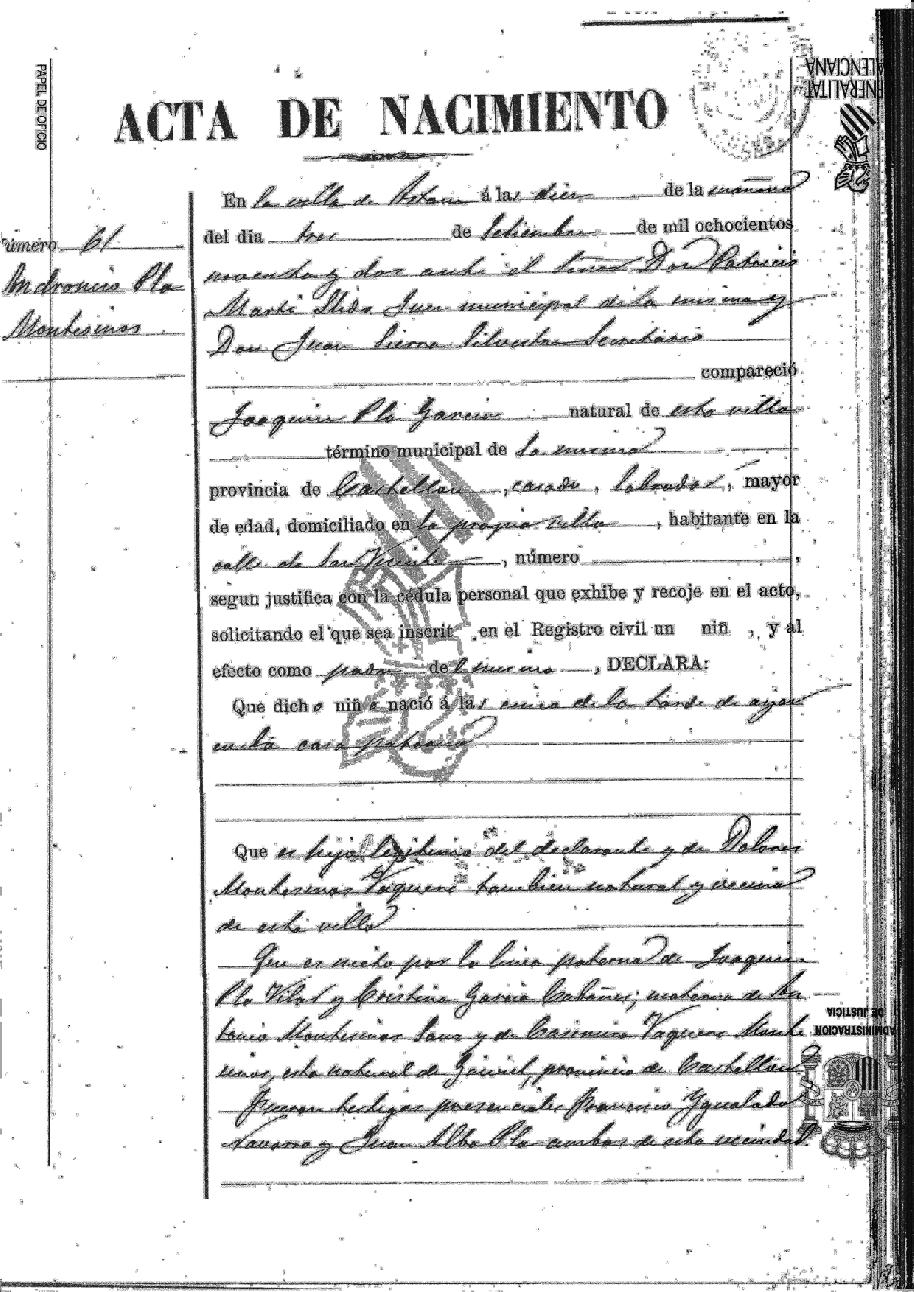 PAPEL DE OFICIO
GENERALITAT
VALENCIANA
ACTA DE NACIMIENTO
Número 61
Andronico Pla
Montesinos
En la villa de á las diez de la mañana
del dia tres de Setiembre de mil ochocientos
noventa y dos ante el Señor Don Patricio
Martí Juez municipal de la misma y
Don Juan Sierra Silvestre Secretario
compareció
Joaquin Pla Garcia natural de esta villa
término municipal de la misma
provincia de Castellon, casado, labrador, mayor
de edad, domiciliado en la propia villa, habitante en la
calle de San Vicente, número
segun justifica con la cédula personal que exhibe y recoje en el acto,
solicitando el que sea inscrit en el Registro civil un niñ, y al
efecto como padre del mismo, DECLARA:
Que dicho niño nació á las cinco de la tarde de ayer
en la casa paterna
Que es hijo legitimo del declarante y de Dolores
Montesinos Vaquero tambien natural y vecina
de esta villa
Que es nieto por la linea paterna de Joaquin
Pla Vilar y Cristina Garcia Cabañes; materna de
Montesinos Sanz y de Casimira Vaquero Monte
sinos, esta natural de Gaibiel, provincia de Castellon
Fueron testigos presenciales Francisco Ygualada
Navarro y Juan Alba Pla ambos de esta vecindad
ADMINISTRACION
DE JUSTICIA